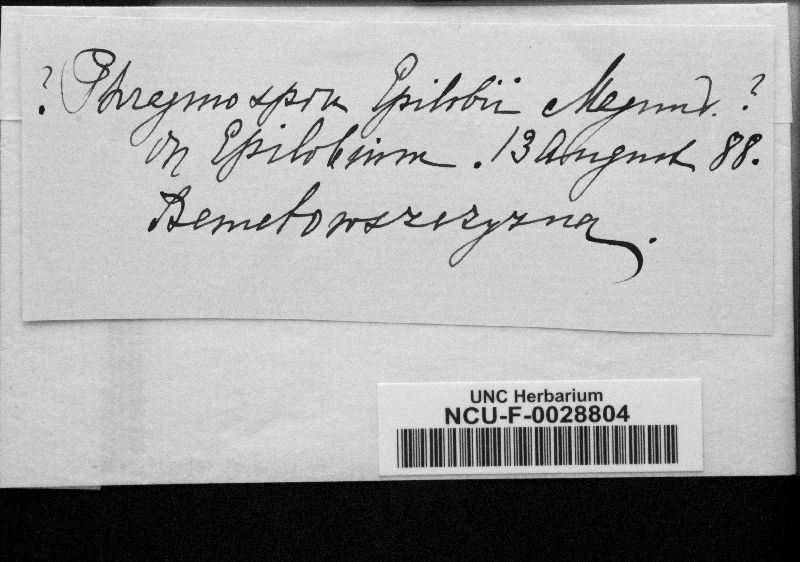 ? Phragmospora Epilobii Magnus. ?
on Epilobium . 13 August 88.
Bemetowszczyzna.
UNC Herbarium
NCU-F-0028804